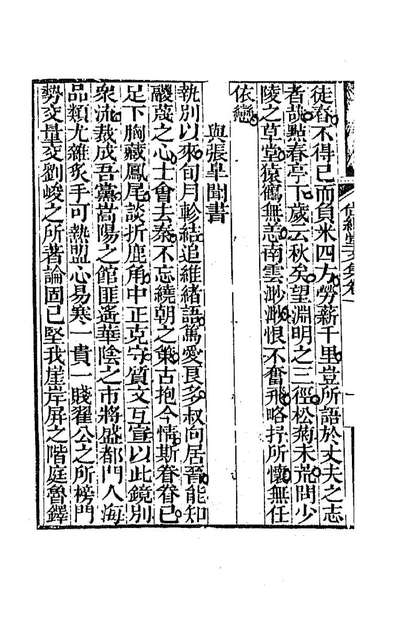 徒春不得已而負米四方勞薪千里豈所語於丈夫之志
者哉點春亭下歲云秋矣望淵明之三徑松菊未荒問少
陵之草堂猿鶴無恙南雲渺渺恨不奮飛略抒所懷無任
依戀
與張皐聞書
執別以來旬月軫結追維緒語篤愛良多叔向居晉能知
鬷蔑之心士會去秦不忘繞朝之策古抱今情斯眷眷已
足下胸藏鳳尾談折鹿角中正克守質文互宣以此鏡別
衆流裁成吾黨嵩陽之館匪遥華陰之市將盛都門人海
品類尤雜炙手可熱盟心易寒一貴一賤翟公之所榜門
勢交量交劉峻之所著論固已堅我崖岸屏之階庭魯鐸